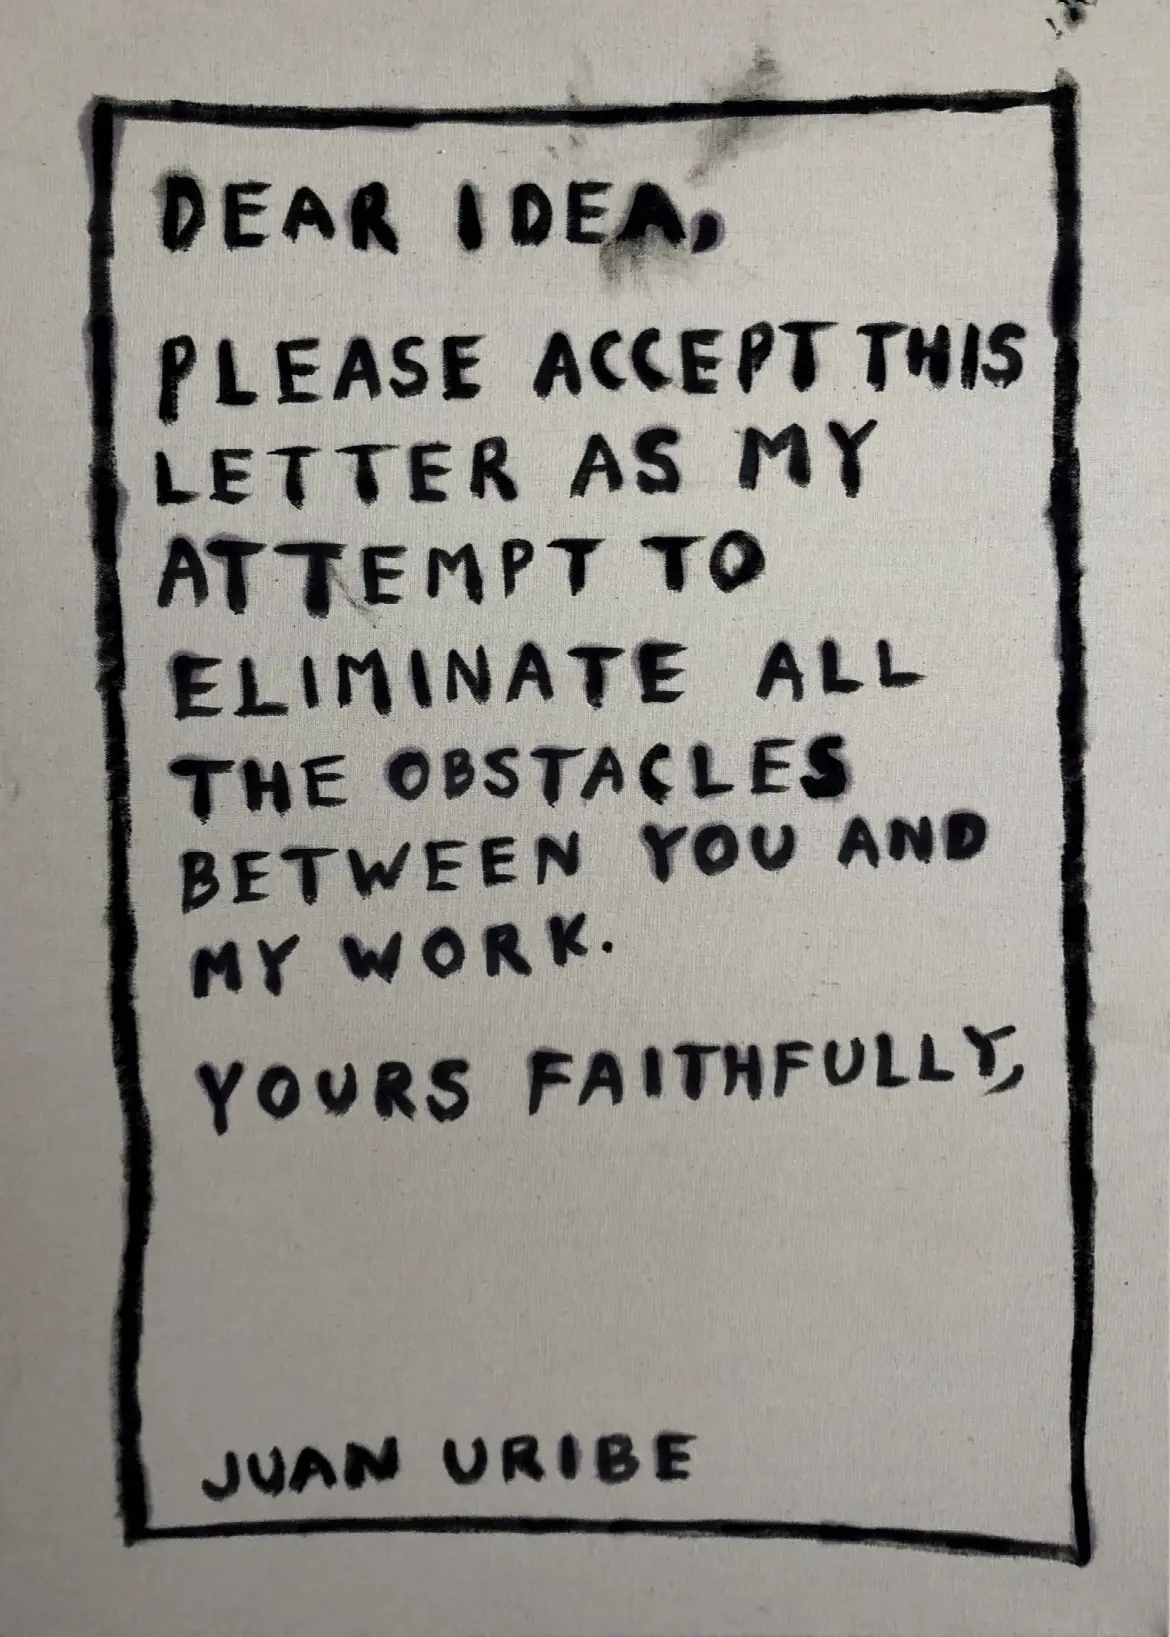 DEAR IDEA,
PLEASE ACCEPT THIS
LETTER AS MY
ATTEMPT TO
ELIMINATE ALL
THE OBSTACLES
BETWEEN YOU AND
MY WORK.
YOURS FAITHFULLY,
JUAN URIBE